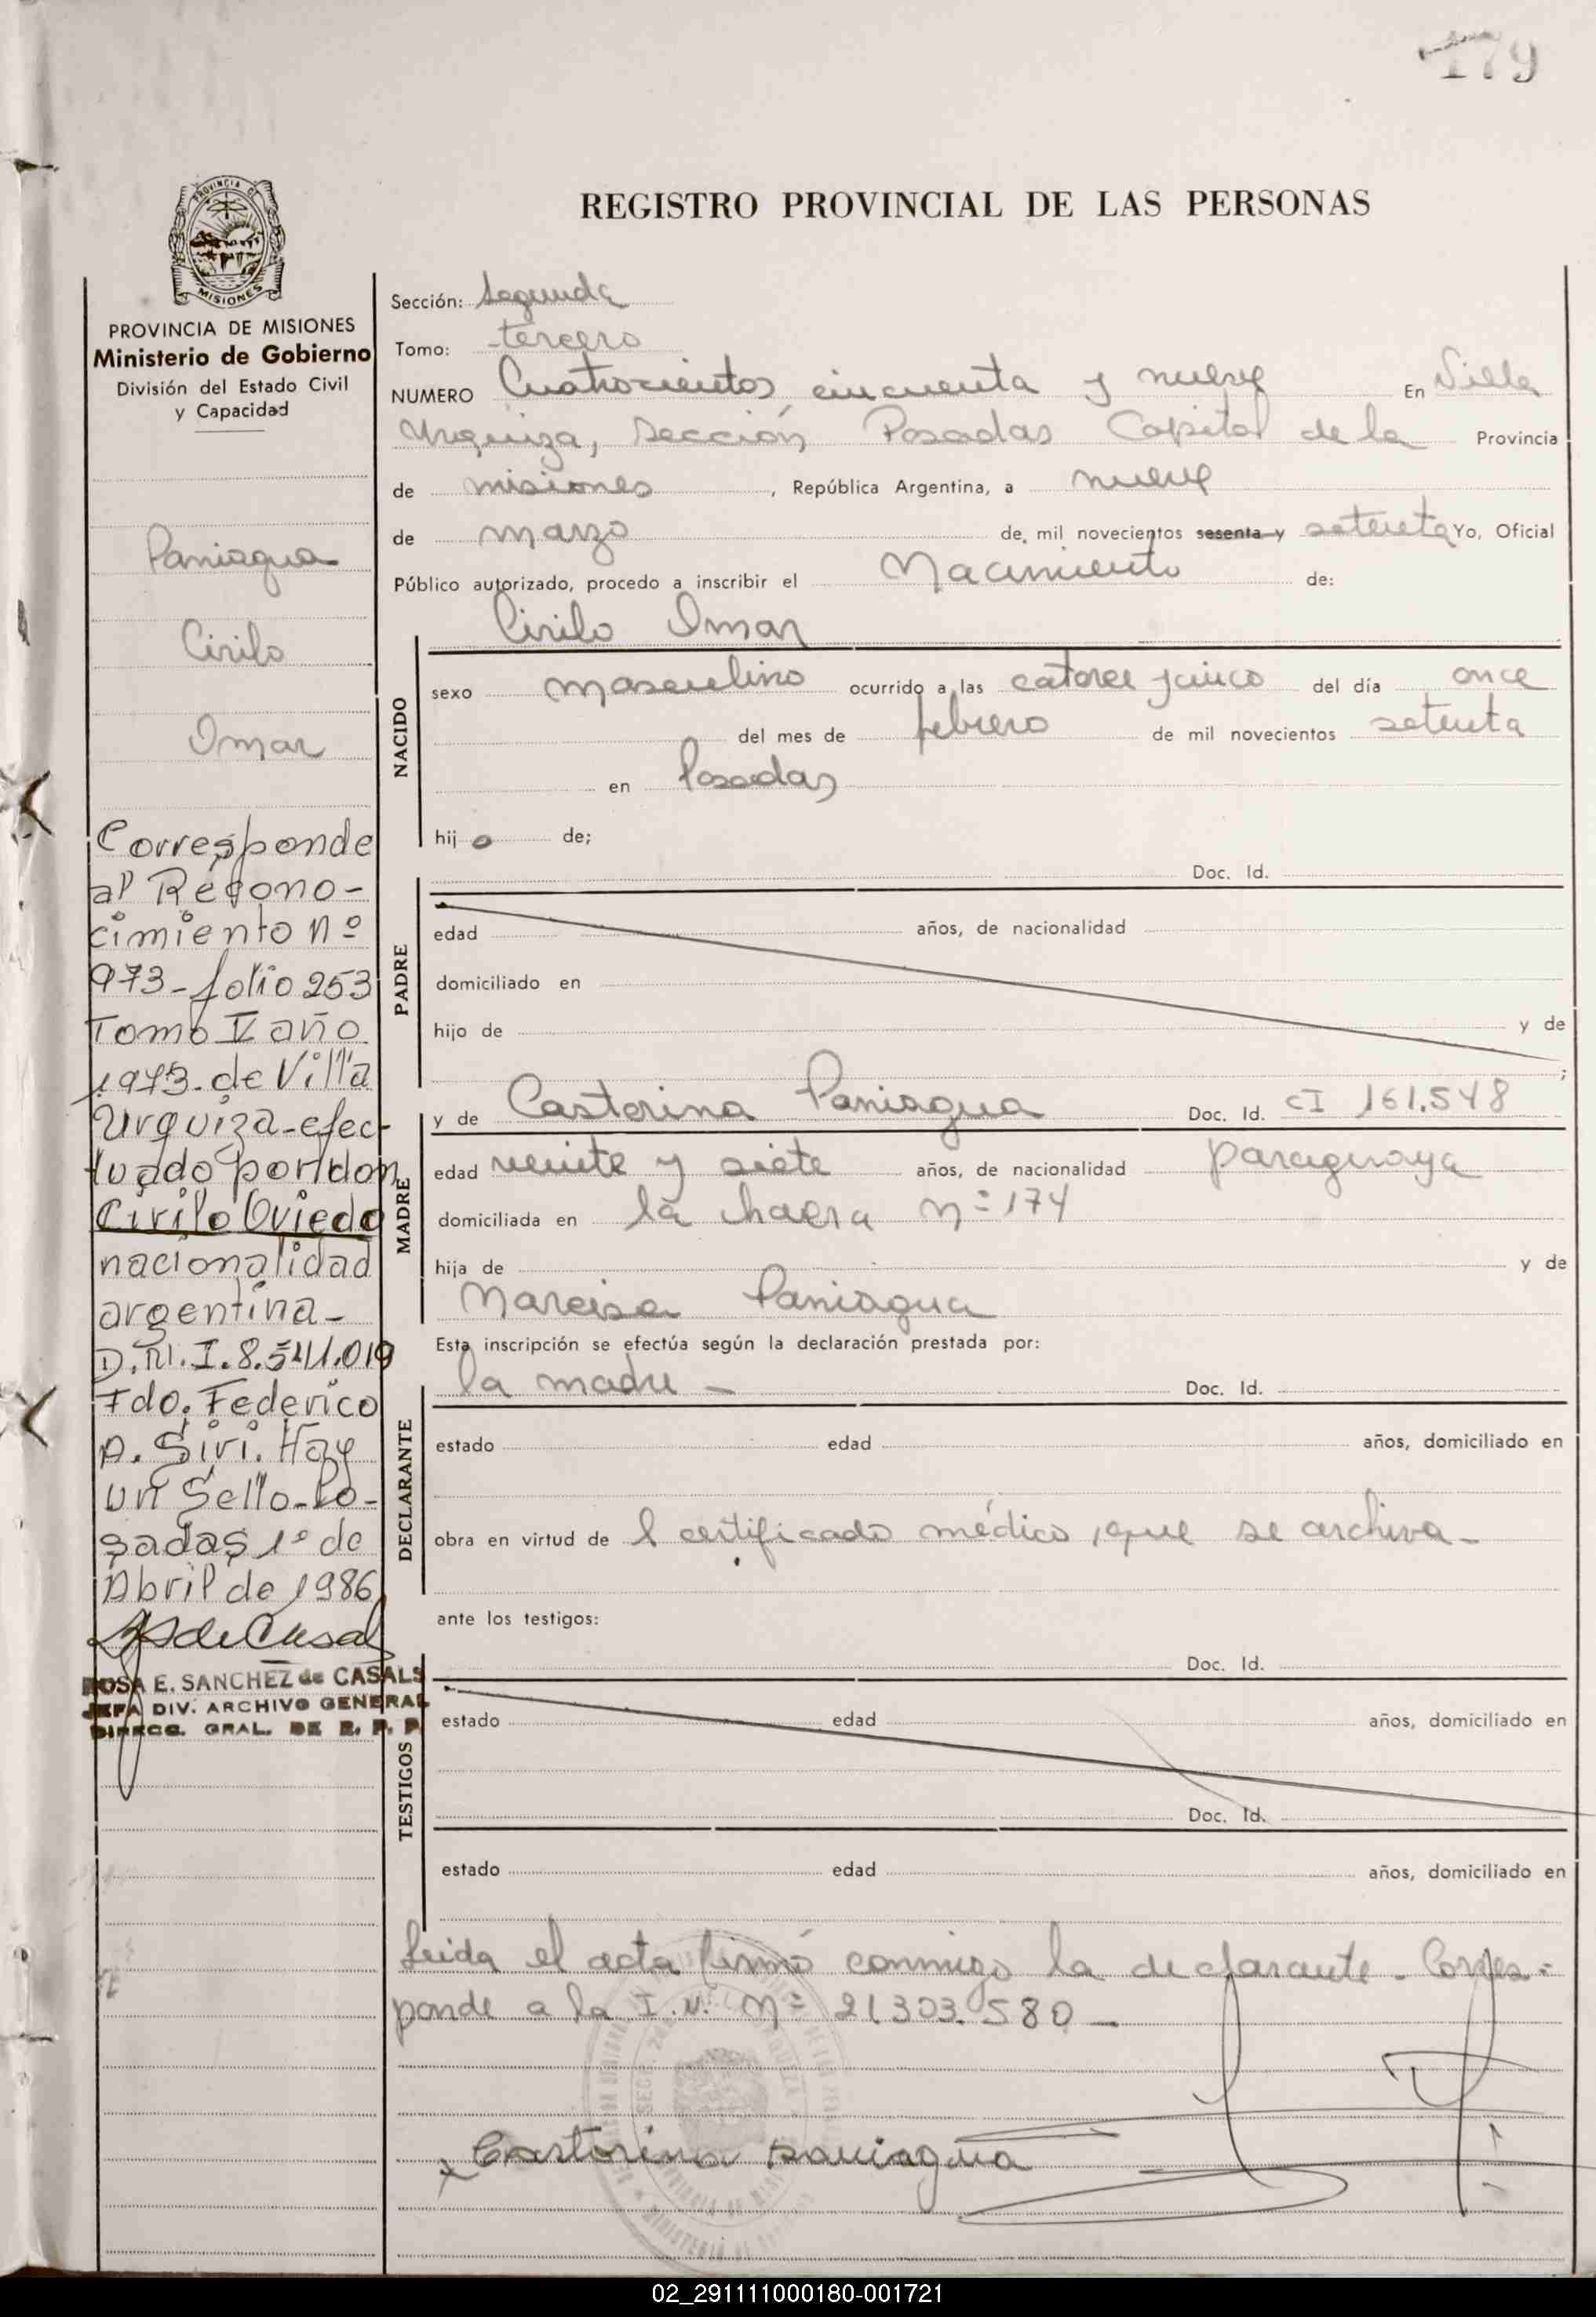 179
PROVINCIA DE
MISIONES
REGISTRO PROVINCIAL DE LAS PERSONAS
PROVINCIA DE MISIONES
Ministerio de Gobierno
División del Estado Civil
y Capacidad
Paniagua
Cirilo
Omar
Corresponde
al Recono-
cimiento nº
973-folio 253
Tomo V año
1973-de Villa
Urquiza-efec-
tuado por don
Cirilo Oviedo
nacionalidad
argentina-
D.N.I. 8.541.019
Fdo. Federico
A. Sivi. Hay
un Sello-Po-
sadas 1º de
Abril de 1986
ROSA E. SANCHEZ de CASALS
JEFA DIV. ARCHIVO GENERAL
DIRECC. GRAL. DE R. P. P.
Sección: Segunda
Tomo: tercero
NUMERO Cuatrocientos cincuenta y nueve En Villa
Urquiza, Sección Posadas Capital de la Provincia
de misiones, República Argentina, a nueve
de marzo de mil novecientos sesenta y setenta Yo, Oficial
Público autorizado, procedo a inscribir el Nacimiento de:
Cirilo Omar
NACIDO
sexo masculino ocurrido a las catorce y cinco del día once
del mes de febrero de mil novecientos setenta
en Posadas
hijo de;
Doc. Id.
PADRE
edad años, de nacionalidad
domiciliado en
hijo de y de
;
MADRE
y de Castorina Paniagua Doc. Id. CI 161.548
edad veinte y siete años, de nacionalidad paraguaya
domiciliada en la chacra nº 174
hija de y de
Narcisa Paniagua
Esta inscripción se efectúa según la declaración prestada por:
la madre - Doc. Id.
DECLARANTE
estado edad años, domiciliado en
obra en virtud de l certificado médico, que se archiva-
ante los testigos:
Doc. Id.
TESTIGOS
estado edad años, domiciliado en
Doc. Id.
estado edad años, domiciliado en
Leida el acta firmó conmigo la declarante. Corres-
ponde a la I.N. Nº 21303.580-
x Castorina Paniagua
02_291111000180-001721